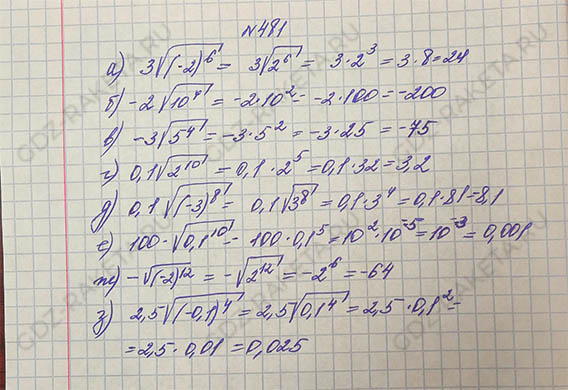 №481
а) 3√(-2)⁶ = 3√2⁶ = 3·2³ = 3·8=24
б) -2√10⁴ = -2·10² = -2·100 = -200
в) -3√5⁴ = -3·5² = -3·25 = -75
г) 0,1√2¹⁰ = 0,1·2⁵ = 0,1·32 = 3,2
д) 0,1√(-3)⁸ = 0,1√3⁸ = 0,1·3⁴ = 0,1·81=8,1
е) 100·√0,1¹⁰ = 100·0,1⁵ = 10²·10⁻⁵ = 10⁻³ = 0,001
ж) -√(-2)¹² = -√2¹² = -2⁶ = -64
з) 2,5√(-0,1)⁴ = 2,5√0,1⁴ = 2,5·0,1² =
= 2,5·0,01 = 0,025
GDZ-RAKETA.RU
GDZ-RAKETA.RU
GDZ-RAKETA.RU
GDZ-RAKETA.RU